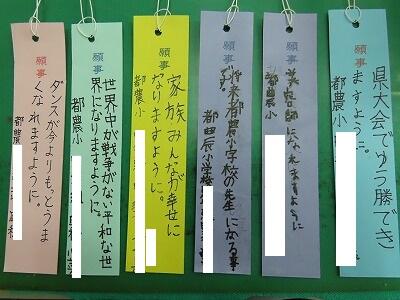 願事
県大会でゆう勝でき
ますように。
都農小
願事
美容師になれますように
都農小
願事
将来都農小学校の先生になる事
です。
都農小学校
願事
家族みんなが幸せに
なりますように。
都農小
願事
世界中が戦争がない平和な世
界になりますように。
都農小
願事
ダンスが今よりもっとうま
くなれますように。
都農